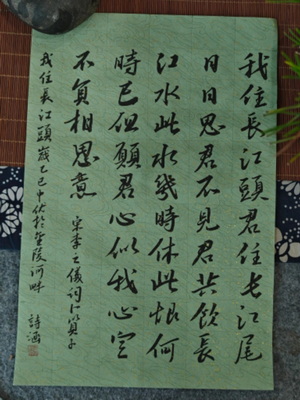 我住長江頭君住长江尾
日日思君不見君共飲長
江水此水幾時休此恨何
時已但願君心似我心定
不負相思意 宋李之儀詞卜算子
我住長江頭歲乙巳中伏於金陵河畔 詩涵